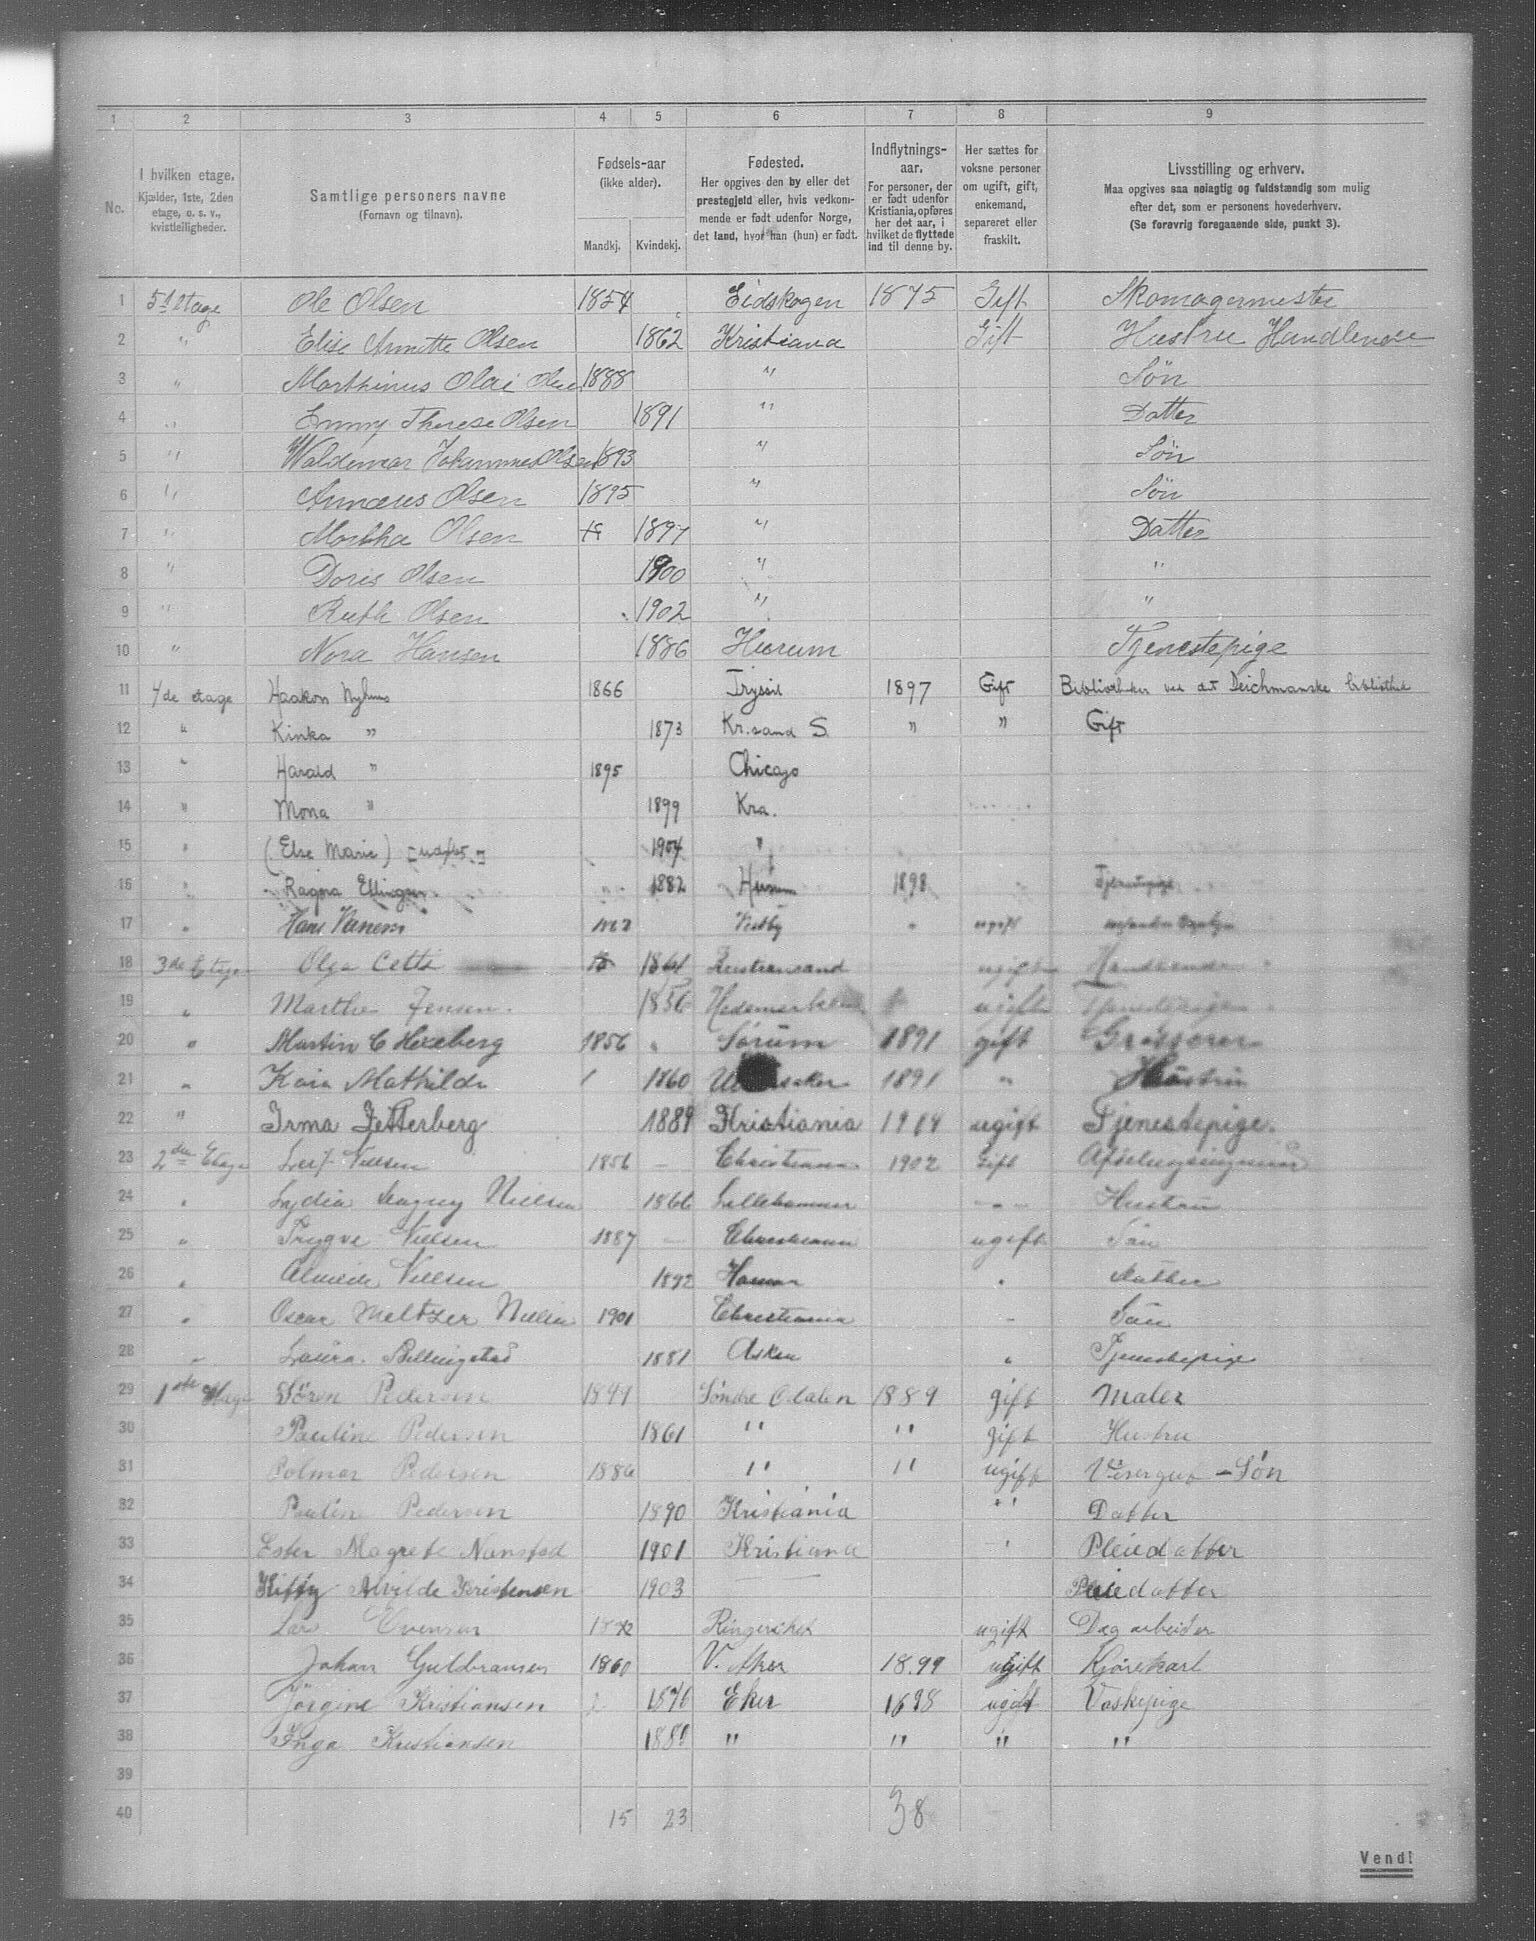 1 2 3 4 5 6 7 8 9
No.
I hvilken etage.
Kjælder, 1ste, 2den
etage, o. s. v.,
kvistleiligheder.
Samtlige personers navne
(Fornavn og tilnavn).
Fødsels-aar
(ikke alder).
Mandkj. Kvindekj.
Fødested.
Her opgives den by eller det
prestegjeld eller, hvis vedkom-
mende er født udenfor Norge,
det land, hvor han (hun) er født.
Indflytnings-
aar.
For personer, der
er født udenfor
Kristiania, opføres
her det aar, i
hvilket de flyttede
ind til denne by.
Her sættes for
voksne personer
om ugift, gift,
enkemand,
separeret eller
fraskilt.
Livsstilling og erhverv.
Maa opgives saa nøiagtig og fuldstændig som mulig
efter det, som er personens hovederhverv.
(Se forøvrig foregaaende side, punkt 3).
1 5te Etage Ole Olsen 1854 Eidskogen 1875 Gift Skomagermester
2 " Elise Annette Olsen 1862 Kristiana Gift Hustru Handlende
3 " Marthinus Olai Olsen 1888 " Søn
4 " Emmy Therese Olsen 1891 " Datter
5 " Waldemar Johannes Olsen 1893 " Søn
6 " Olsen 1895 " Søn
7 " Martha Olsen 1897 " Datter
8 " Doris Olsen 1900 " "
9 " Ruth Olsen 1902 " "
10 " Nora Hansen 1886 Hurum Tjenestepige
11 4de etage Haakon Nyhuus 1866 Trysil 1897 Gift Bibliothekar ved det Deichmanske bibliothek
12 " Kinka " 1873 Kr.sand S. " " Gift
13 " Harald " 1895 Chicago
14 " Mona " 1899 Kra.
15 " (Else Marie) 1904 "
16 " Ragna Ellingsen 1882 Hurum 1898 Tjenestepige
17 " Hans Vestby " ugift
18 3de Etage Olga Cetti 1864 Kristiansand ugift Handlende
19 " Marthe Jensen 1856 Hedemarken ugift Tjenestepige
20 " Martin C 1856 Sørum 1891 gift Grosserer
21 " Kaia Mathilde 1860 Ullensaker 1891 " Hustru
22 " Irma Zetterberg 1889 Kristiania 1904 ugift Tjenestepige.
23 2den Etage Leif Nielsen 1856 Christiania 1902 Gift
24 " Lydia Magny Nielsen 1866 Lillehammer " Hustru
25 " Trygve Nielsen 1887 Christiania ugift Søn
26 " Nielsen 1892 Hamar " Datter
27 " Oscar Meltzer Nielsen 1901 Christiania Søn
28 " Laura Billingstad 1881 Asker " Tjenestepige
29 1ste Etage Søren Pedersen Søndre Odalen 1889 gift Maler
30 Pauline Pedersen 1861 " " gift Hustru
31 Polmar Pedersen 1886 " " ugift Visergut - Søn
32 Pauline Pedersen 1890 Kristiania " Datter
33 Ester Magrete Nanstad 1901 Kristiana Pleiedatter
34 Kitty Alvilde Kristensen 1903 Pleiedatter
35 Lars Evensen Ringerike ugift Dagarbeider
36 Johan Gulbransen 1860 V. Aker 1899 ugift Kjørekarl
37 Jörgine Kristiansen Eker 1898 ugift Vaskepige
38 Inga Kristiansen " " " "
39
40 15 23 38
Vend!